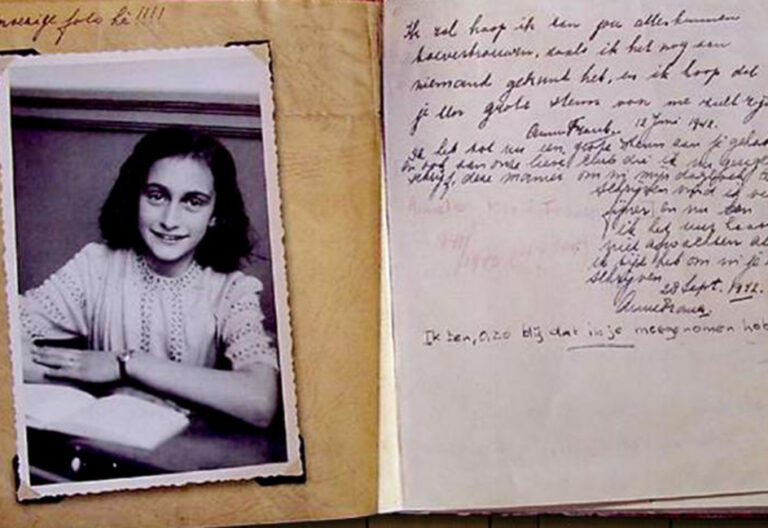 foto hè!!!!
Ik zal hoop ik aan jou alles kunnen
toevertrouwen, zoals ik het nog aan
niemand gekund heb, en ik hoop dat
je een grote steun van me zult zijn
Anne Frank. 12 Juni 1942.
Ik heb tot nu een grote steun aan je gehad
en ook aan onze lieve club die ik nu
schrijf, deze manier om in mijn dagboek te
schrijven vind ik
fijner en nu kan
ik het uur haast
niet afwachten als
ik tijd heb om in je te
schrijven
28 Sept. 1942.
Anne Frank.
Ik ben, o, zo blij dat ik je meegenomen heb